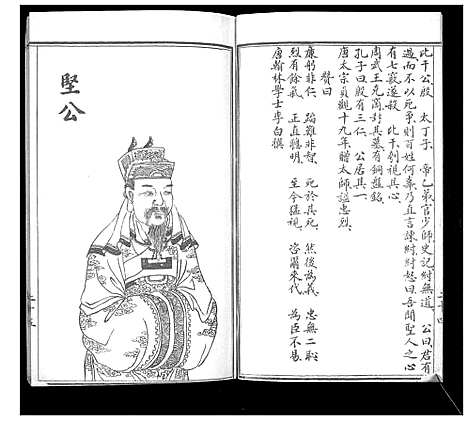 比干公殷 太丁子 帝乙弟官少師史記紂無道 公曰君有
過而不以死爭則百姓何辜乃直言諫紂紂怒曰吾聞聖人之心
有七竅遂殺 比干刳視其心
周武王克商封其墓有銅盤銘
孔子曰殷有三仁 公居其一
唐太宗貞觀十九年贈太師謚忠烈
贊曰
康躬非仁 蹈難非智 死於其死 然後為義 忠無二躬
烈有餘氣 正直聰明 至今猛視 咨爾來代 為臣不易
唐翰林學士李白撰
堅公